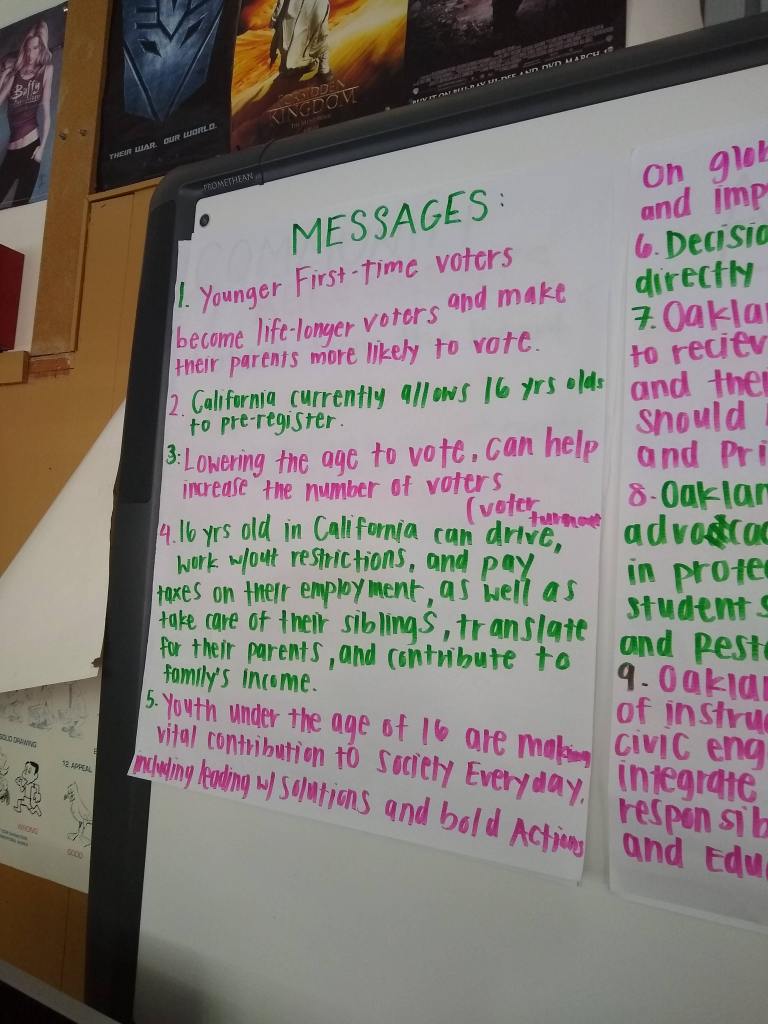 Buffy
THEIR WAR. OUR WORLD.
FORBIDDEN
KINGDOM
BUY IT ON BLU-RAY HI-DEF AND DVD MARCH
PROMETHEAN
MESSAGES:
1. Younger First-time voters
become life-longer voters and make
their parents more likely to vote.
2. California currently allows 16 yrs olds
to pre-register.
3. Lowering the age to vote, can help
increase the number of voters
(voter turnout
4. 16 yrs old in California can drive,
work w/out restrictions, and pay
taxes on their employment, as well as
take care of their siblings, translate
for their parents, and contribute to
family's income.
5. Youth under the age of 16 are making
vital contribution to society Everyday,
including leading w/ solutions and bold Actions
On glob
and imp
6. Decisio
directly
7. Oaklan
to reciev
and thei
should
and Pri
8. Oaklan
advocac
in prote
students
and Rest
9. Oaklan
of instruc
civic eng
integrate
responsib
and Educ
SOLID DRAWING
12. APPEAL
WRONG
GOOD